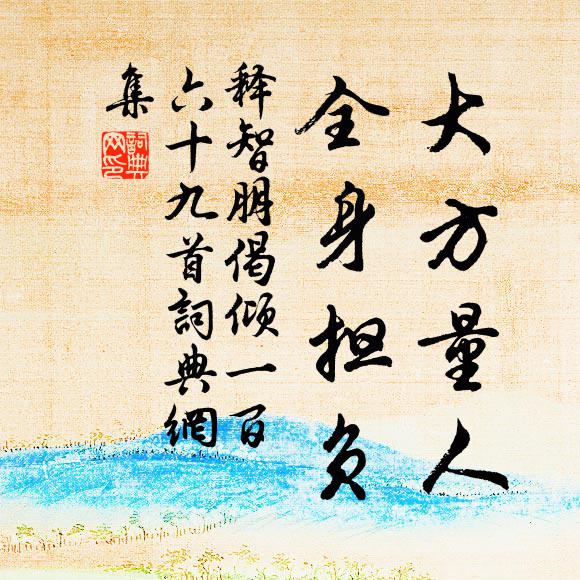 大方量人
全身担负
释智朋偈倾一百
六十九首詞典網
集
詞典
网印